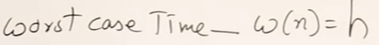 worst case Time _ w(n) = h